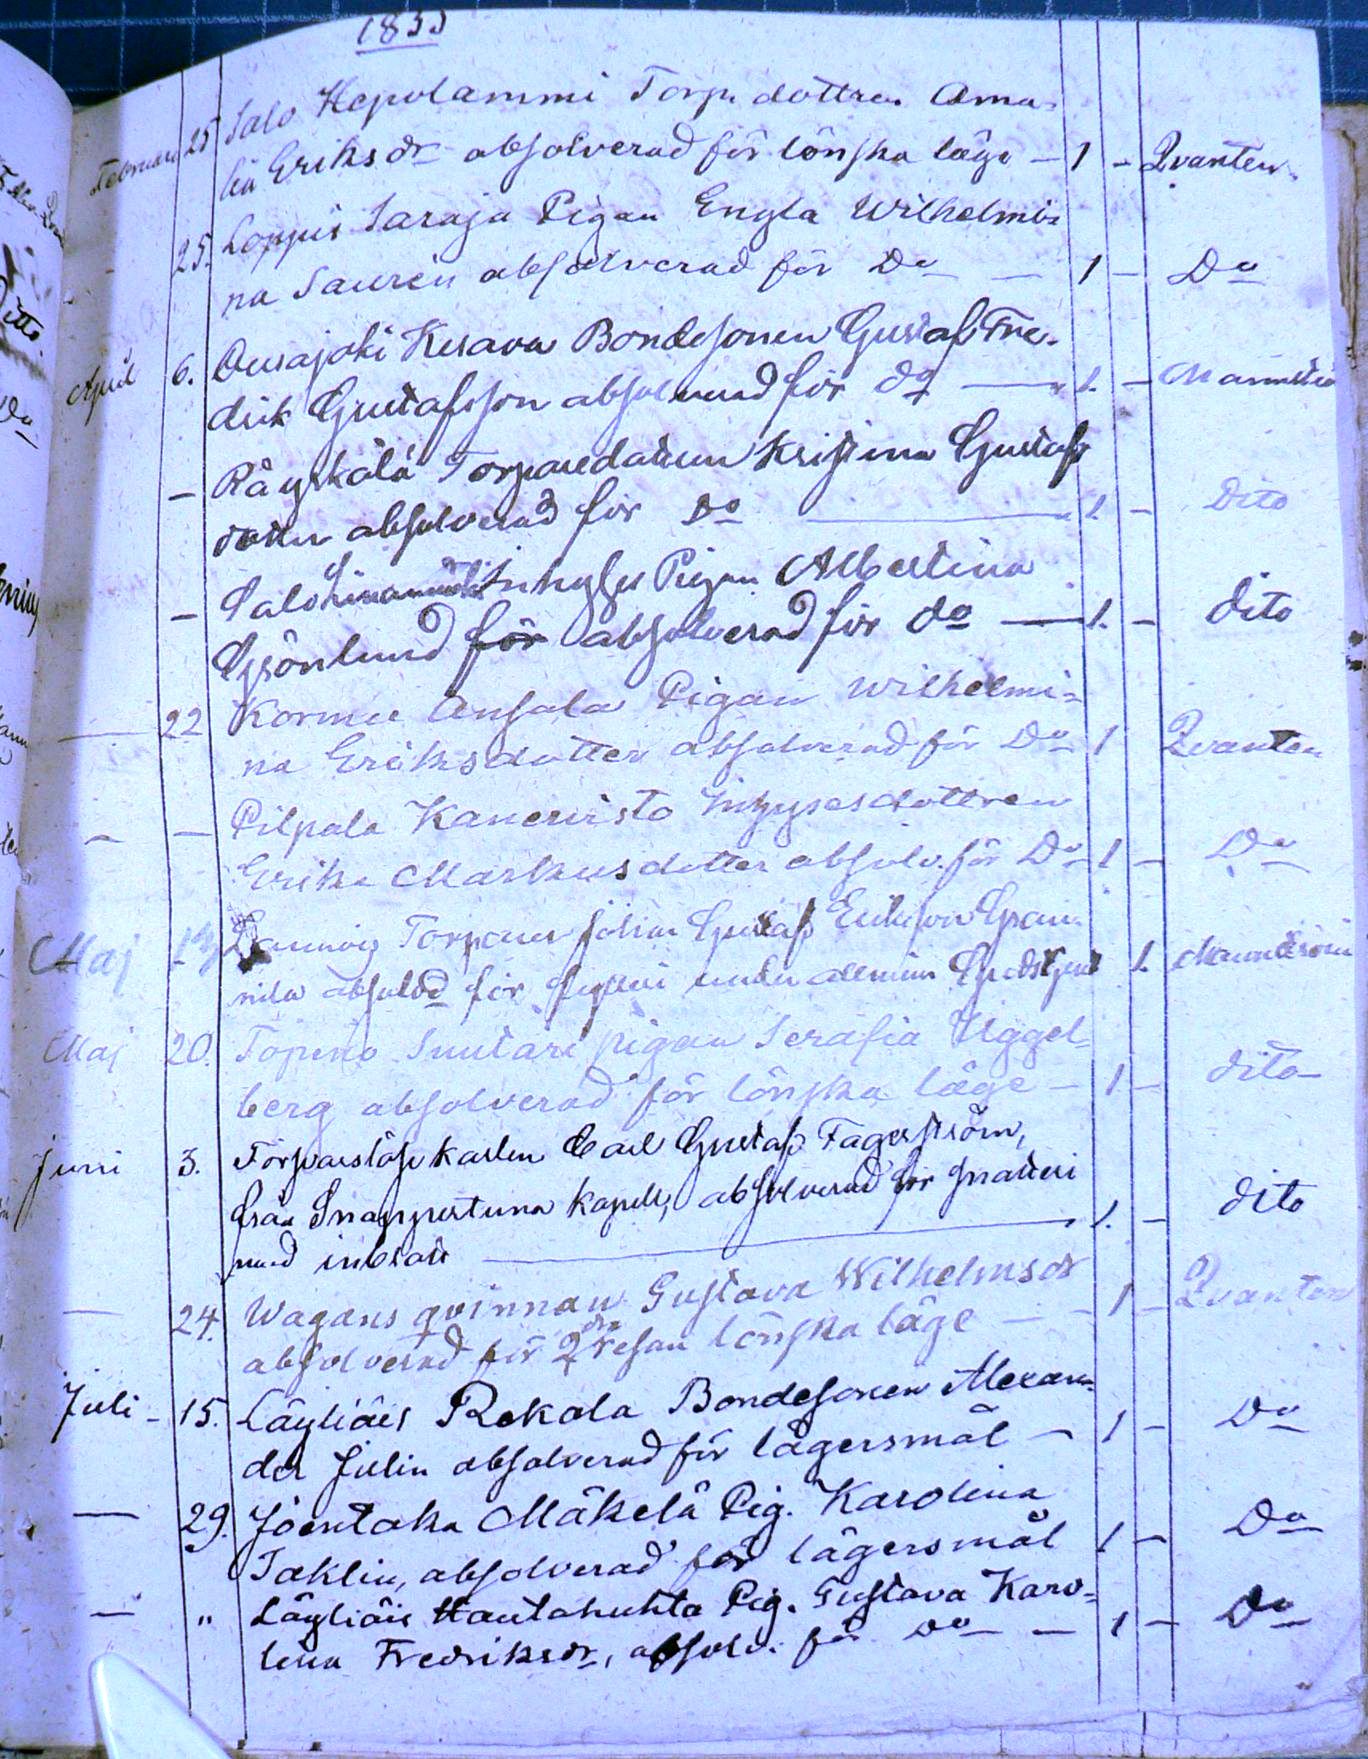 1833
Februari 25 Salo Hepolammi Torp. dottren Ama-
lia Eriksdr absolverad för lönska läge - 1 - Qvanten.
25. Loppis Saraja Pigan Engla Wilhelmi-
na Saurén absolverad för Do - 1 - Do
April 6. Ourajoki Kerava Bondesonen Gustaf Fre-
drik Gustafsson absolverad för do - 1. -
- Räyskälä Torparedottren Kristina Gustafs
dotter absolverad för Do - 1. - Dito
- Salo Inhyses Pigan Albertina
Grönlund för absolverad för do - 1. - dito
- 22 Kormu Ansala Pigan Wilhelmi-
na Eriksdotter absolverad för Do 1 Qvanten
- - Pilpala Kanervisto Inhysesdottren
Erika Markusdotter absolv. för Do - 1 - Do
Maj 13 Torparen Johan Gustaf Eriksson Gran-
absolvd för fylleri under allmän Gudstjenst 1.
Maj 20. Topeno Suutari pigan Serafia Uggel-
berg absolverad för lönska läge - 1 - dito
Juni 3. Försvarslöse karlen Carl Gustaf Fagerström,
från Snappertuna Kapell, absolverad för snatteri
med inbrott - 1. - dito
- 24. Wagans qvinnan Gustava Wilhelmsdr
absolverad för 2dra resan lönska läge - 1 - Qvanten
Juli - 15. Läyliäis Rekola Bondesonen Alexan-
der Julin absolverad för lägersmål - 1 - Do
- 29. Joentaka Mäkelä Pig. Karolina
Taklin, absolverad för lägersmål 1 - Do
- " Läyliäis Hautahuhta Pig. Gustava Karo-
lina Fredriksdr, absolv. för Do - 1 - Do